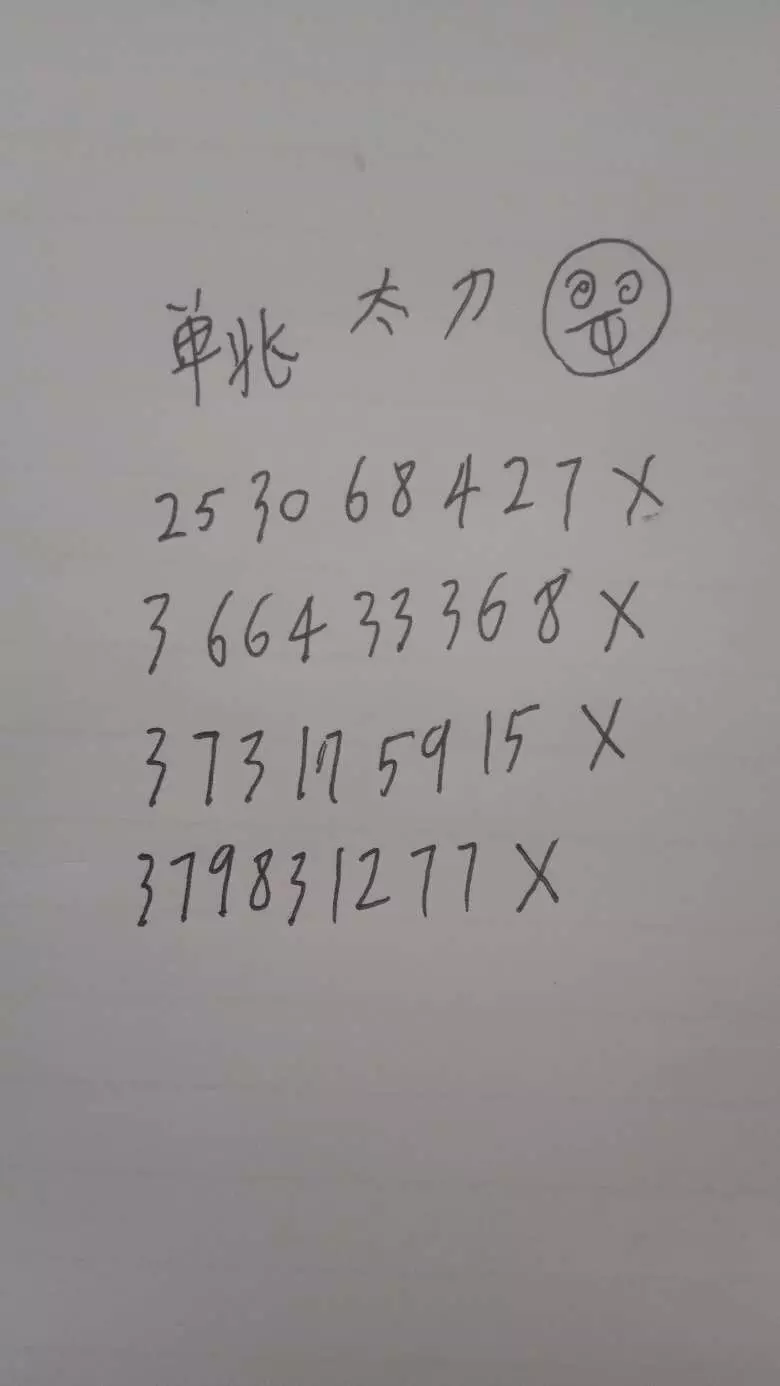 单兆 太刀
253068427X
366433368X
373175915X
379831277X